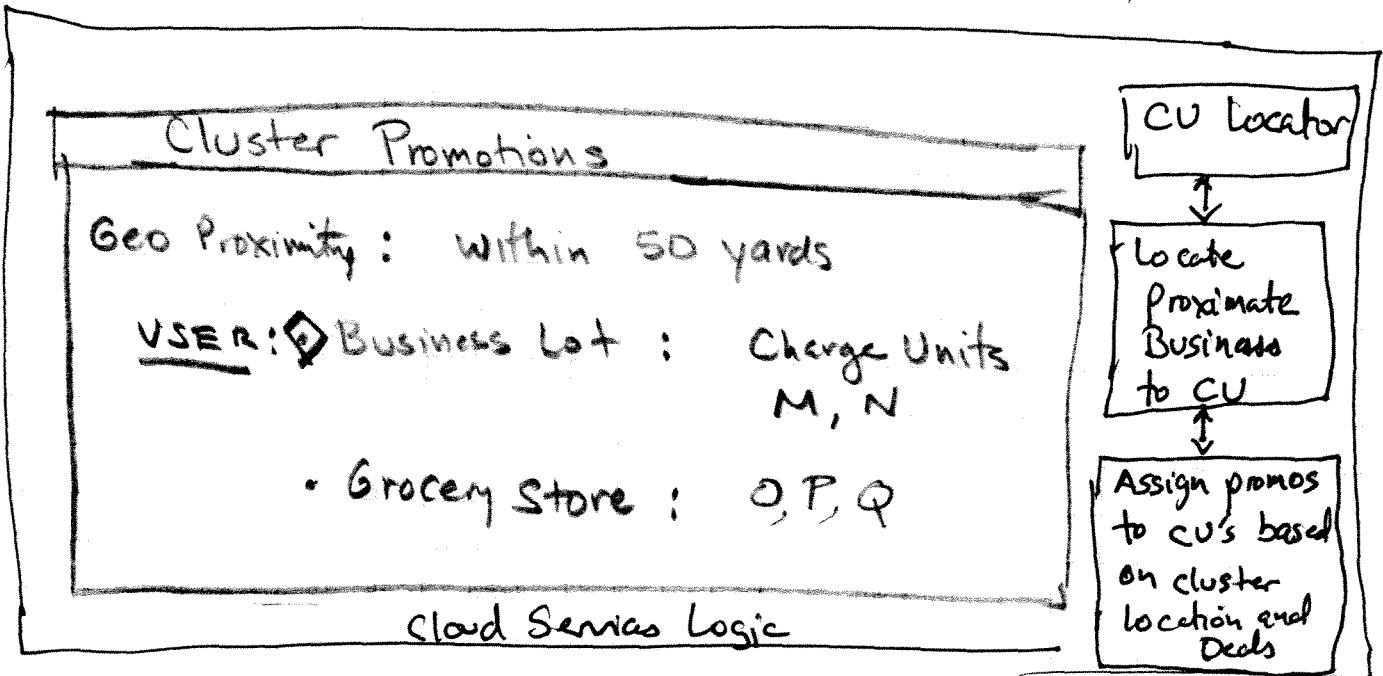 Cluster Promotions
Geo Proximity: within 50 yards
USER: Business Lot : Charge Units
M, N
• Grocery Store : O, P, Q
Cloud Services Logic
CU Locator
Locate
Proximate
Business
to CU
Assign promos
to CU's based
on cluster
location and
Deals